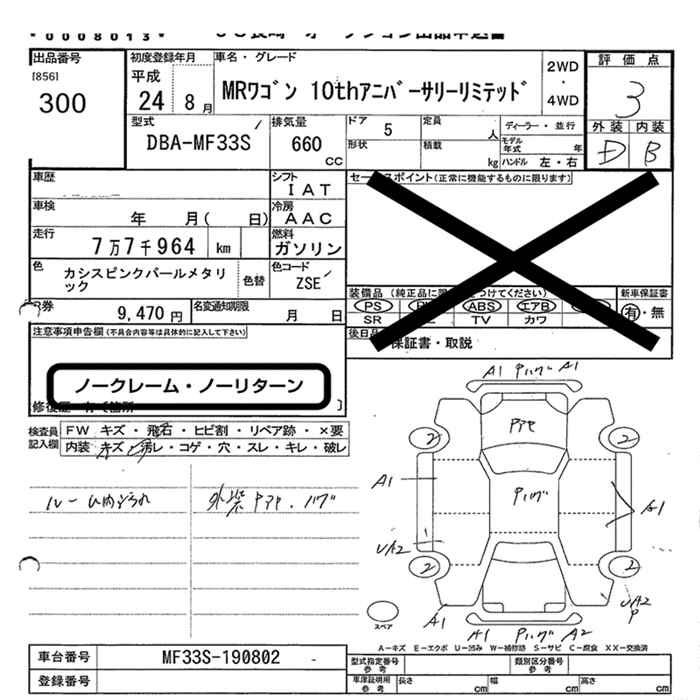 *00008013*
ＵＳ長崎 オークション出品申込書
出品番号
[856]
300
初度登録年月
平成
24 8月
車名・グレード
MRワゴン 10thアニバーサリーリミテッド
2WD
・
4WD
評価点
3
外装 内装
D B
型式
DBA-MF33S
排気量
660
cc
ドア 5
形状
定員 人
積載 kg
ディーラー・並行
モデル年式 年
ハンドル 左・右
車歴
シフト
IAT
セールスポイント(正常に機能するものに限ります)
車検
年 月( 日)
冷房
AAC
走行
7万7千964 km
燃料
ガソリン
色
カシスピンクパールメタリック
色替
色コード
ZSE
装備品 (純正品に限
つけてください)
新車保証書
PS ABS エアB
有・無
SR TV カワ
R券
9,470円
名変通知期限
月 日
後日品
保証書・取説
注意事項申告欄(不具合内容等は具体的に記入して下さい)
ノークレーム・ノーリターン
修復歴
検査員記入欄
FW キズ・飛石・ヒビ割・リペア跡・×要
内装 キズ・汚レ・コゲ・穴・スレ・キレ・破レ
ルーム内汚れ
A1 A1
2 2
A1
A1
UA2
2 2
UA2
P
A1
A1 A2
スペア
A−キズ E−エクボ U−凹み W−補修跡 S−サビ C−腐食 XX−交換済
車台番号
MF33S-190802
登録番号
型式指定番号
参考
類別区分番号
参考
車庫証明用
参考
長さ cm
幅 cm
高さ cm